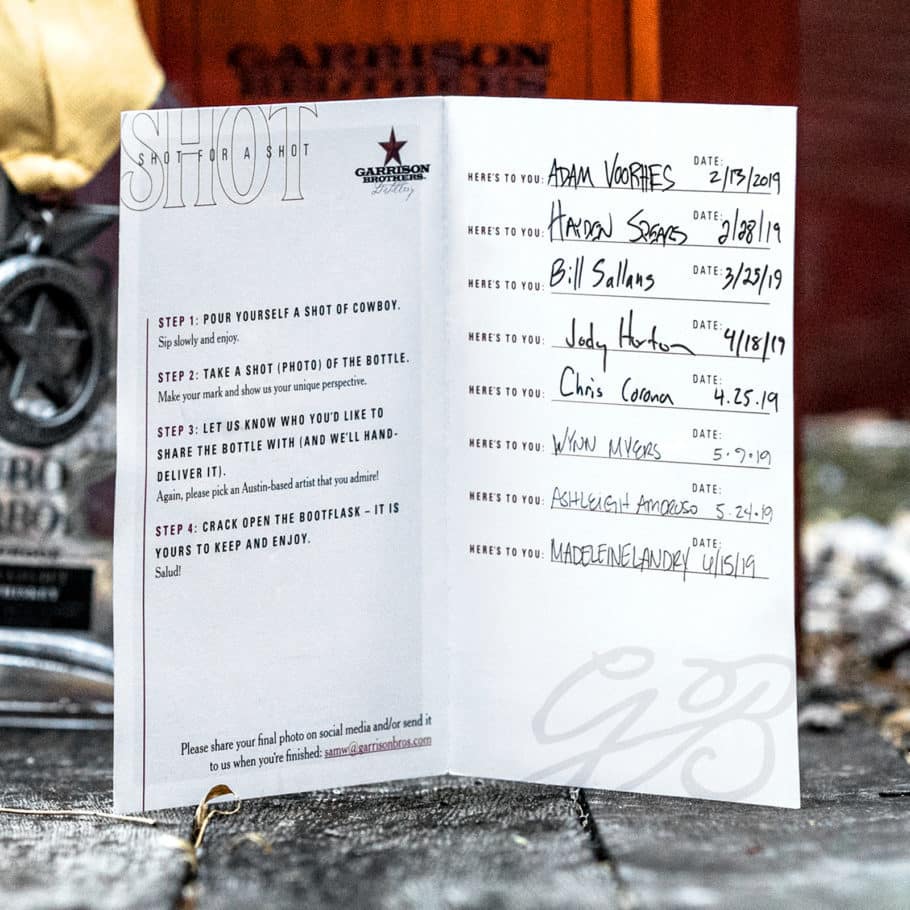 GARRISON
BROTHERS
SHOT
SHOT FOR A SHOT
GARRISON
BROTHERS
Distillery
STEP 1: POUR YOURSELF A SHOT OF COWBOY.
Sip slowly and enjoy.
STEP 2: TAKE A SHOT (PHOTO) OF THE BOTTLE.
Make your mark and show us your unique perspective.
STEP 3: LET US KNOW WHO YOU'D LIKE TO
SHARE THE BOTTLE WITH (AND WE'LL HAND-
DELIVER IT).
Again, please pick an Austin-based artist that you admire!
STEP 4: CRACK OPEN THE BOOTFLASK – IT IS
YOURS TO KEEP AND ENJOY.
Salud!
Please share your final photo on social media and/or send it
to us when you're finished: samw@garrisonbros.com
HERE'S TO YOU: ADAM VOORHES DATE: 2/13/2019
HERE'S TO YOU: HAYDEN SPEARS DATE: 2/28/19
HERE'S TO YOU: Bill Sallans DATE: 3/25/19
HERE'S TO YOU: Jody Horton DATE: 4/18/19
HERE'S TO YOU: Chris Corona DATE: 4.25.19
HERE'S TO YOU: WYNN MYERS DATE: 5.9.19
HERE'S TO YOU: ASHLEIGH AMOROSO DATE: 5.24.19
HERE'S TO YOU: MADELEINE LANDRY DATE: 6/15/19
GB